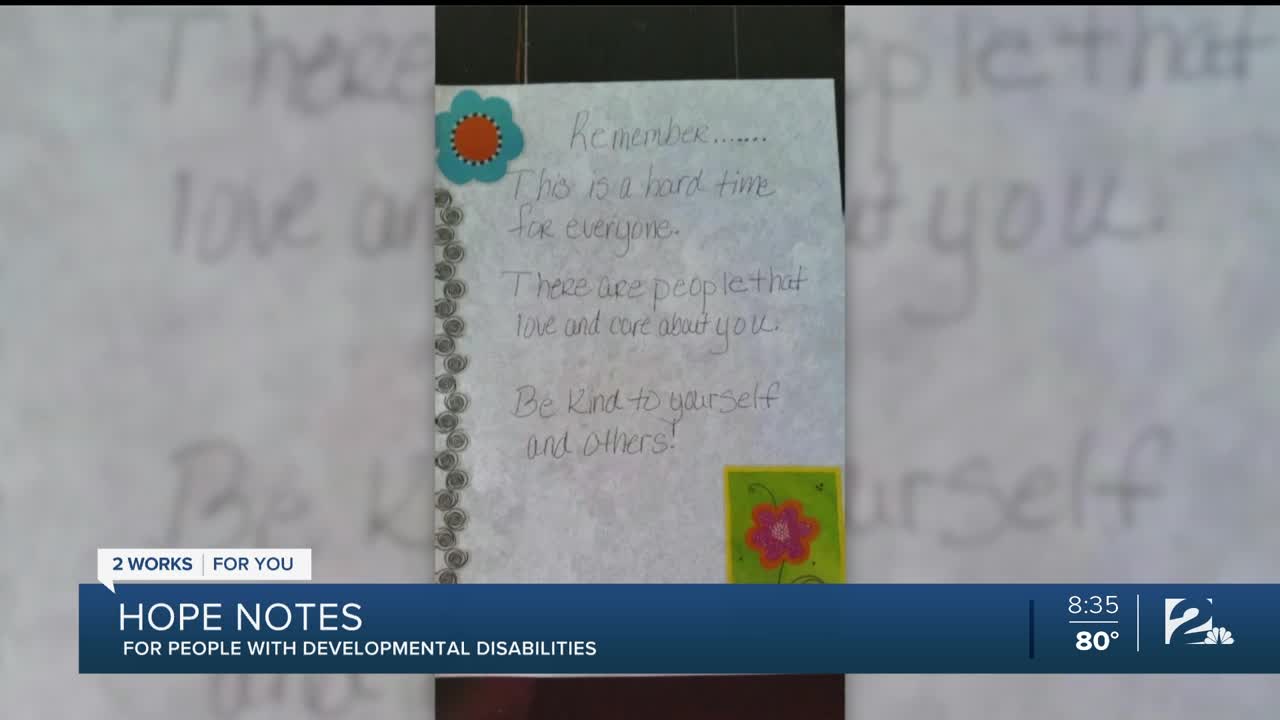 Remember.......
This is a hard time
for everyone.
There are people that
love and care about you.
Be kind to yourself
and others!
There
ople that
love an
t you.
Be K
urself
and
2 WORKS FOR YOU
HOPE NOTES
FOR PEOPLE WITH DEVELOPMENTAL DISABILITIES
8:35
80°
2